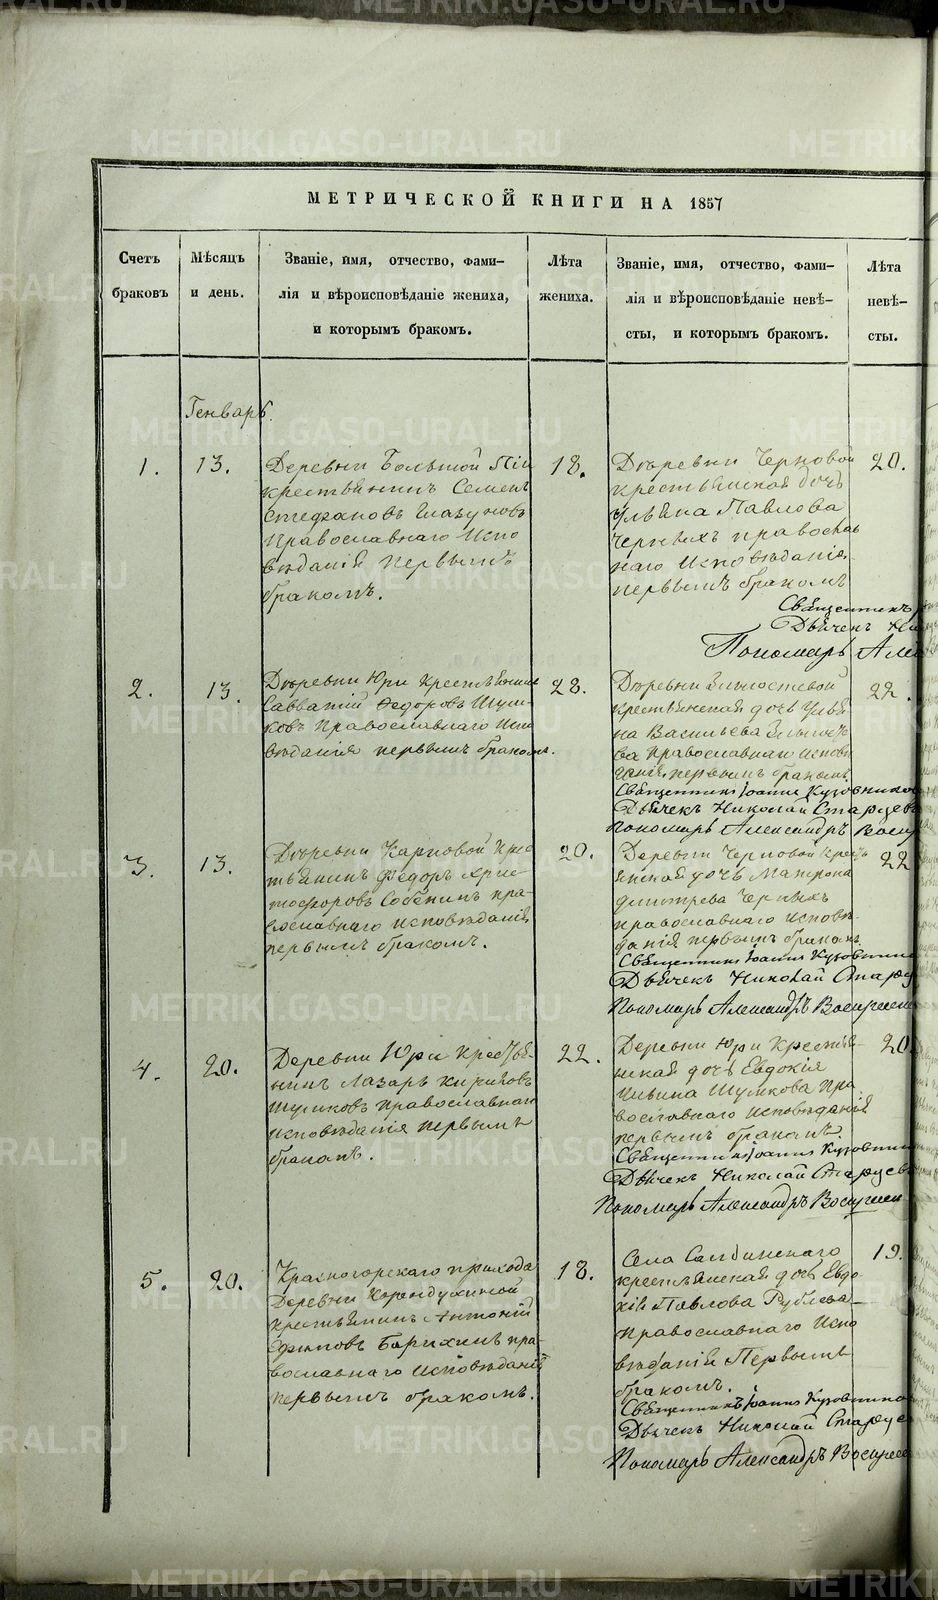 МЕТРИЧЕСКОЙ КНИГИ НА 1857
Счетъ
браковъ
Мѣсяцъ
и день.
Званіе, имя, отчество, фами-
лія и вѣроисповѣданіе жениха,
и которымъ бракомъ.
Лѣта
жениха.
Званіе, имя, отчество, фами-
лія и вѣроисповѣданіе невѣ-
сты, и которымъ бракомъ.
Лѣта
невѣ-
сты.
Генварь.
1.
13.
Деревни Большой
крестьянинъ Семенъ
Стефановъ Глазуновъ
Православнаго Испо
вѣданія первымъ
бракомъ.
18.
Деревни Черновой
крестьянская дочь
Ульяна Павлова
Черныхъ правосла
наго Исповѣданія
первымъ бракомъ
20.
Священникъ
Дьячекъ Ни
Пономарь Але
2.
13.
Деревни Юри Крестьянинъ
Савватій Федоровъ Шум-
ковъ Православнаго Испо
вѣданія первымъ бракомъ.
28.
Деревни
крестьянская дочь Улья
на Васильева
ва Православнаго Исповѣ
данія первымъ бракомъ
22.
Священникъ Іоаннъ Кузовников
Дьячекъ Николай Старцевъ
Пономарь Александръ Воскр
3.
13.
Деревни Карповой Крес
тьянинъ Федоръ Хрис
тофоровъ Собенинъ пра-
вославнаго исповѣданія
первымъ бракомъ.
20.
Деревни Черновой Кресть
янская дочь Матрона
Дмитрева Черныхъ
православнаго исповѣ-
данія первымъ бракомъ
22
Священникъ Іоаннъ Кузовник
Дьячекъ Николай Старце
Пономарь Александръ Воскресен
4.
20.
Деревни Юри Крестья-
нинъ Лазарь Кириловъ
Шумковъ Православнаго
исповѣданія первымъ
бракомъ.
22.
Деревни Юри Крестья-
нская дочь Евдокія
Ильина Шумкова Пра
вославнаго исповѣданія
первымъ бракомъ
20
Священникъ Іоаннъ Кузовник
Дьячекъ Николай Старцевъ
Пономарь Александръ Воскресен
5.
20.
Красногорскаго прихода
Деревни Корендухиной
крестьянинъ Антоній
Ефимовъ Борихинъ пра-
вославнаго исповѣданія
первымъ бракомъ.
18.
Села Салдинскаго
крестьянская дочь Евдо
кія Павлова Рублева
православнаго Испо
вѣданія Первымъ
бракомъ.
19.
Священникъ Іоаннъ Кузовников
Дьячекъ Николай Старце
Пономарь Александръ Воскресе
METRIKI.GASO-URAL.RU